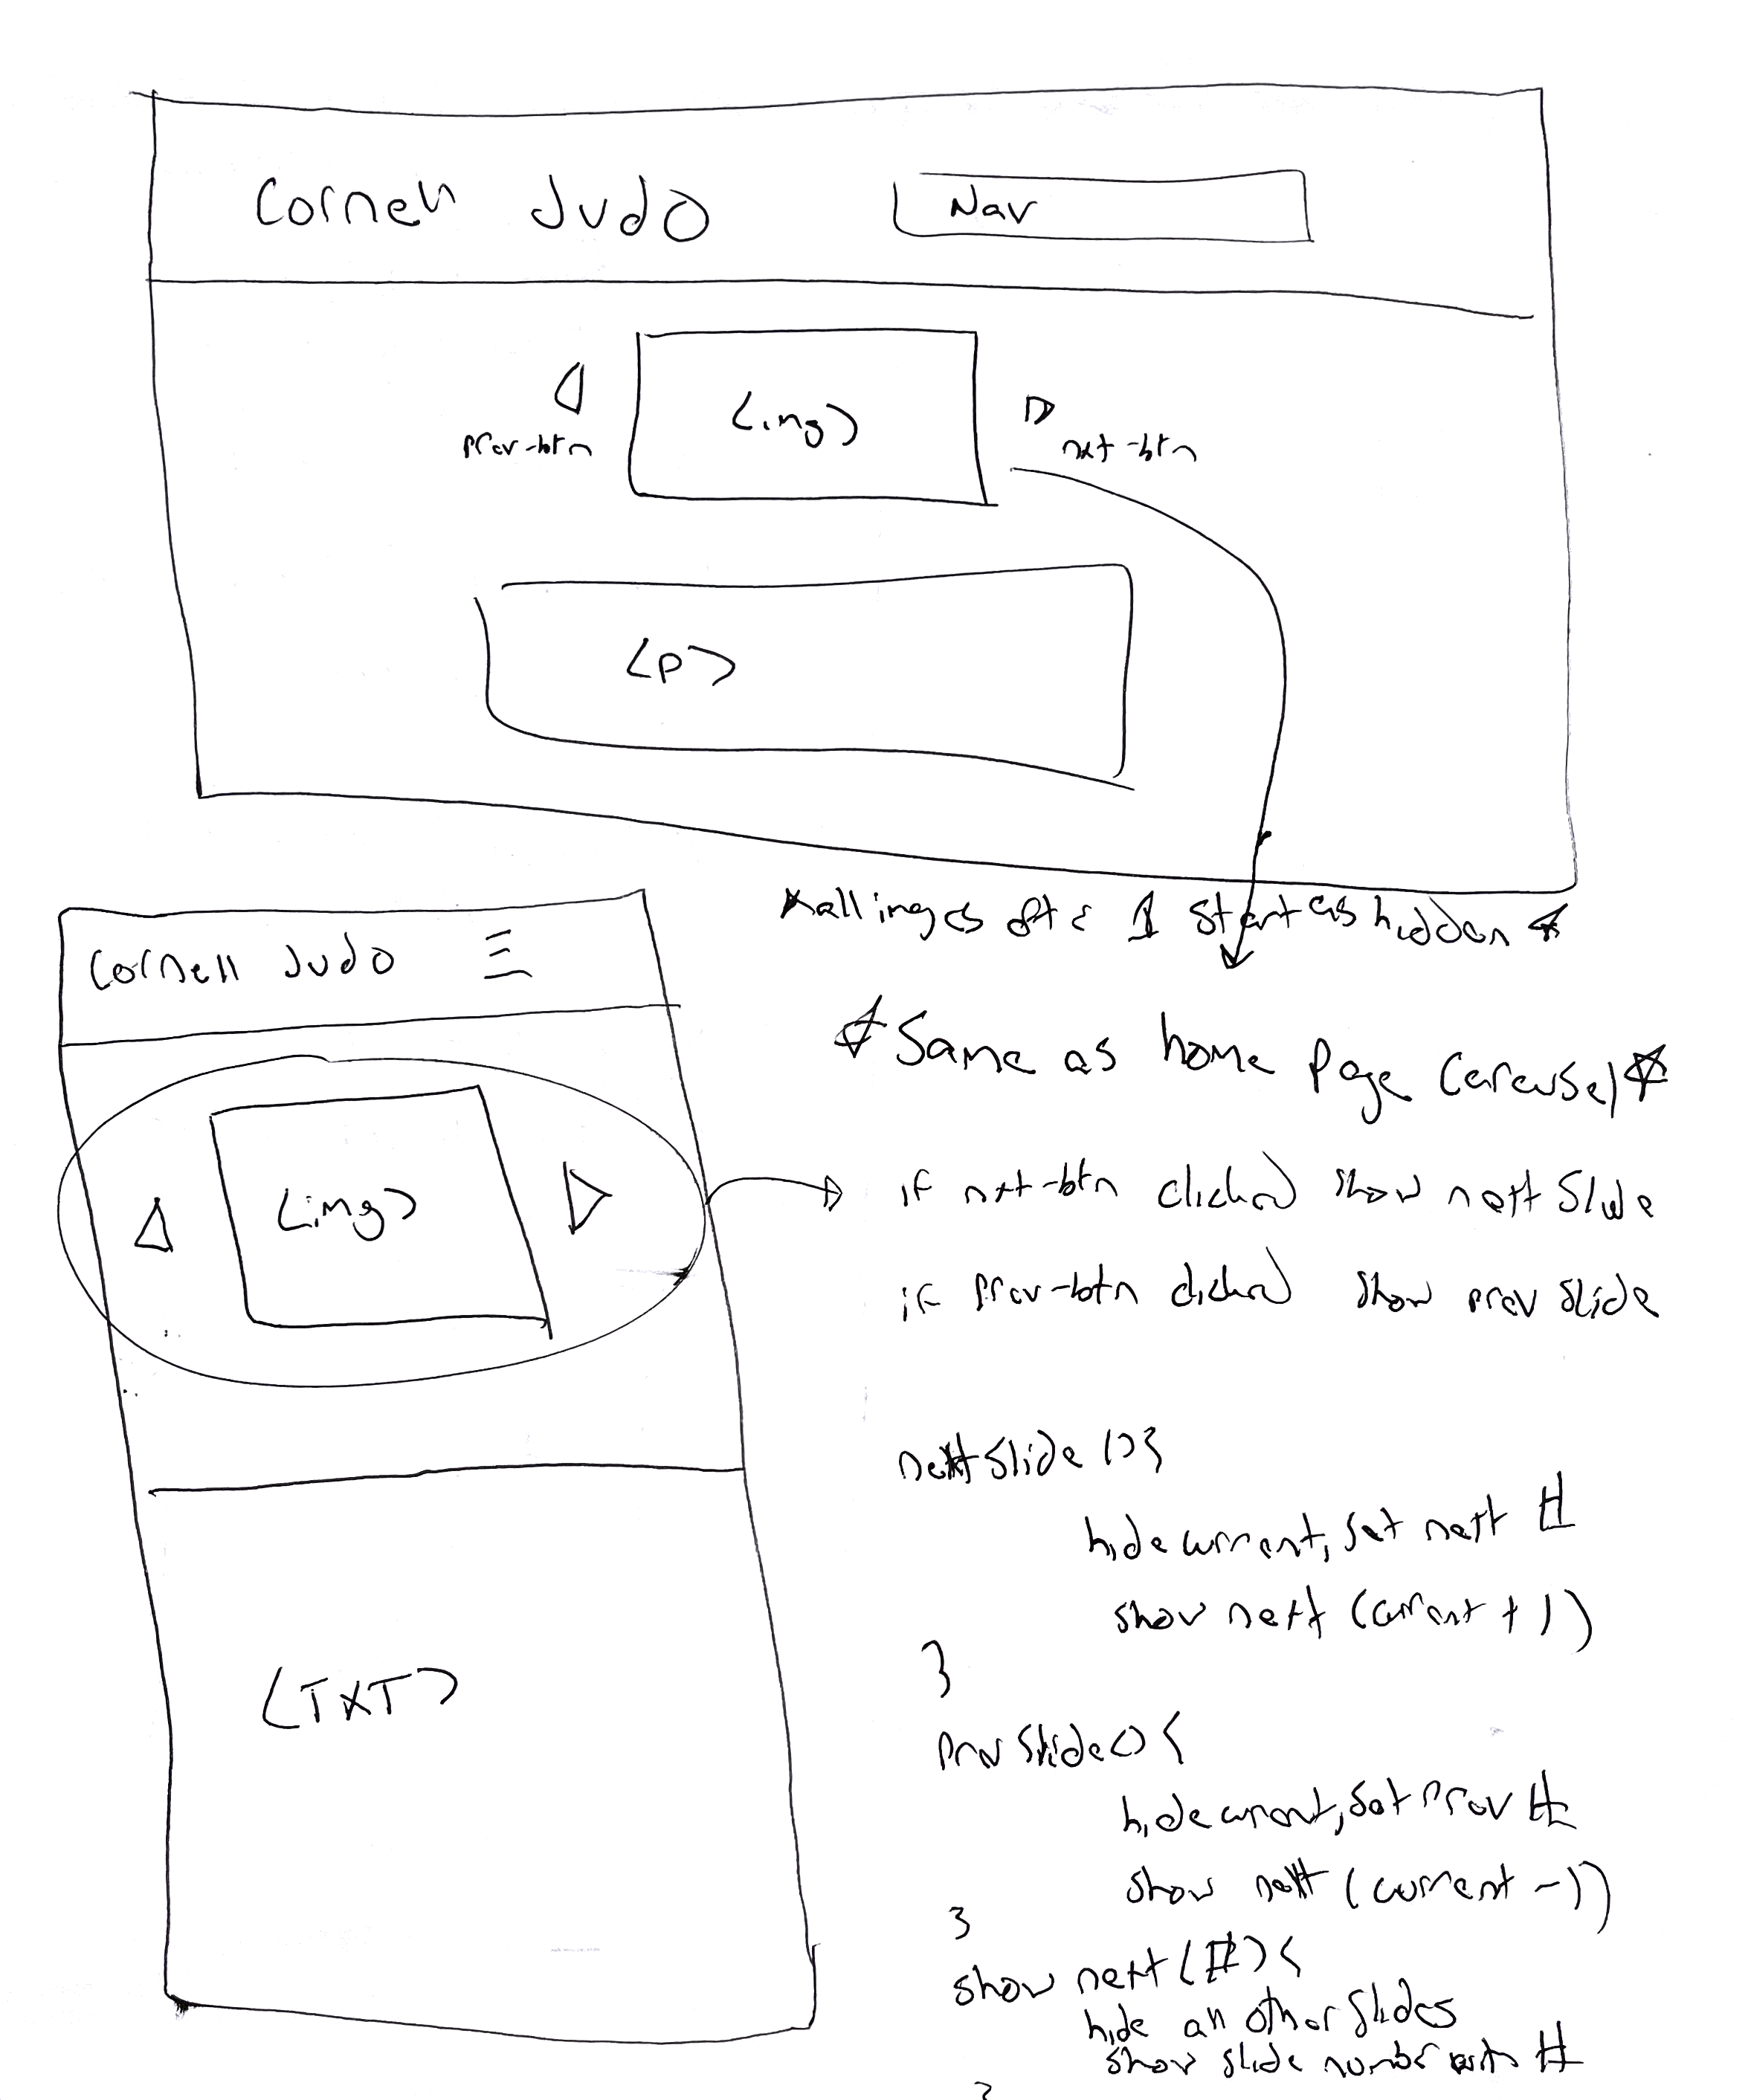 Cornell Judo
Nav
<img>
prev-btn
nxt-btn
<p>
*all images after 1 start as hidden*
Cornell Judo
*Same as home page carousel*
<img>
if nxt-btn clicked show next slide
if prev-btn clicked show prev slide
next slide () {
hide current, set next #
show next (current + 1)
}
<TXT>
prev slide () {
hide current, set prev #
show next (current -1)
}
show next (#) {
hide all other slides
show slide number with #
}